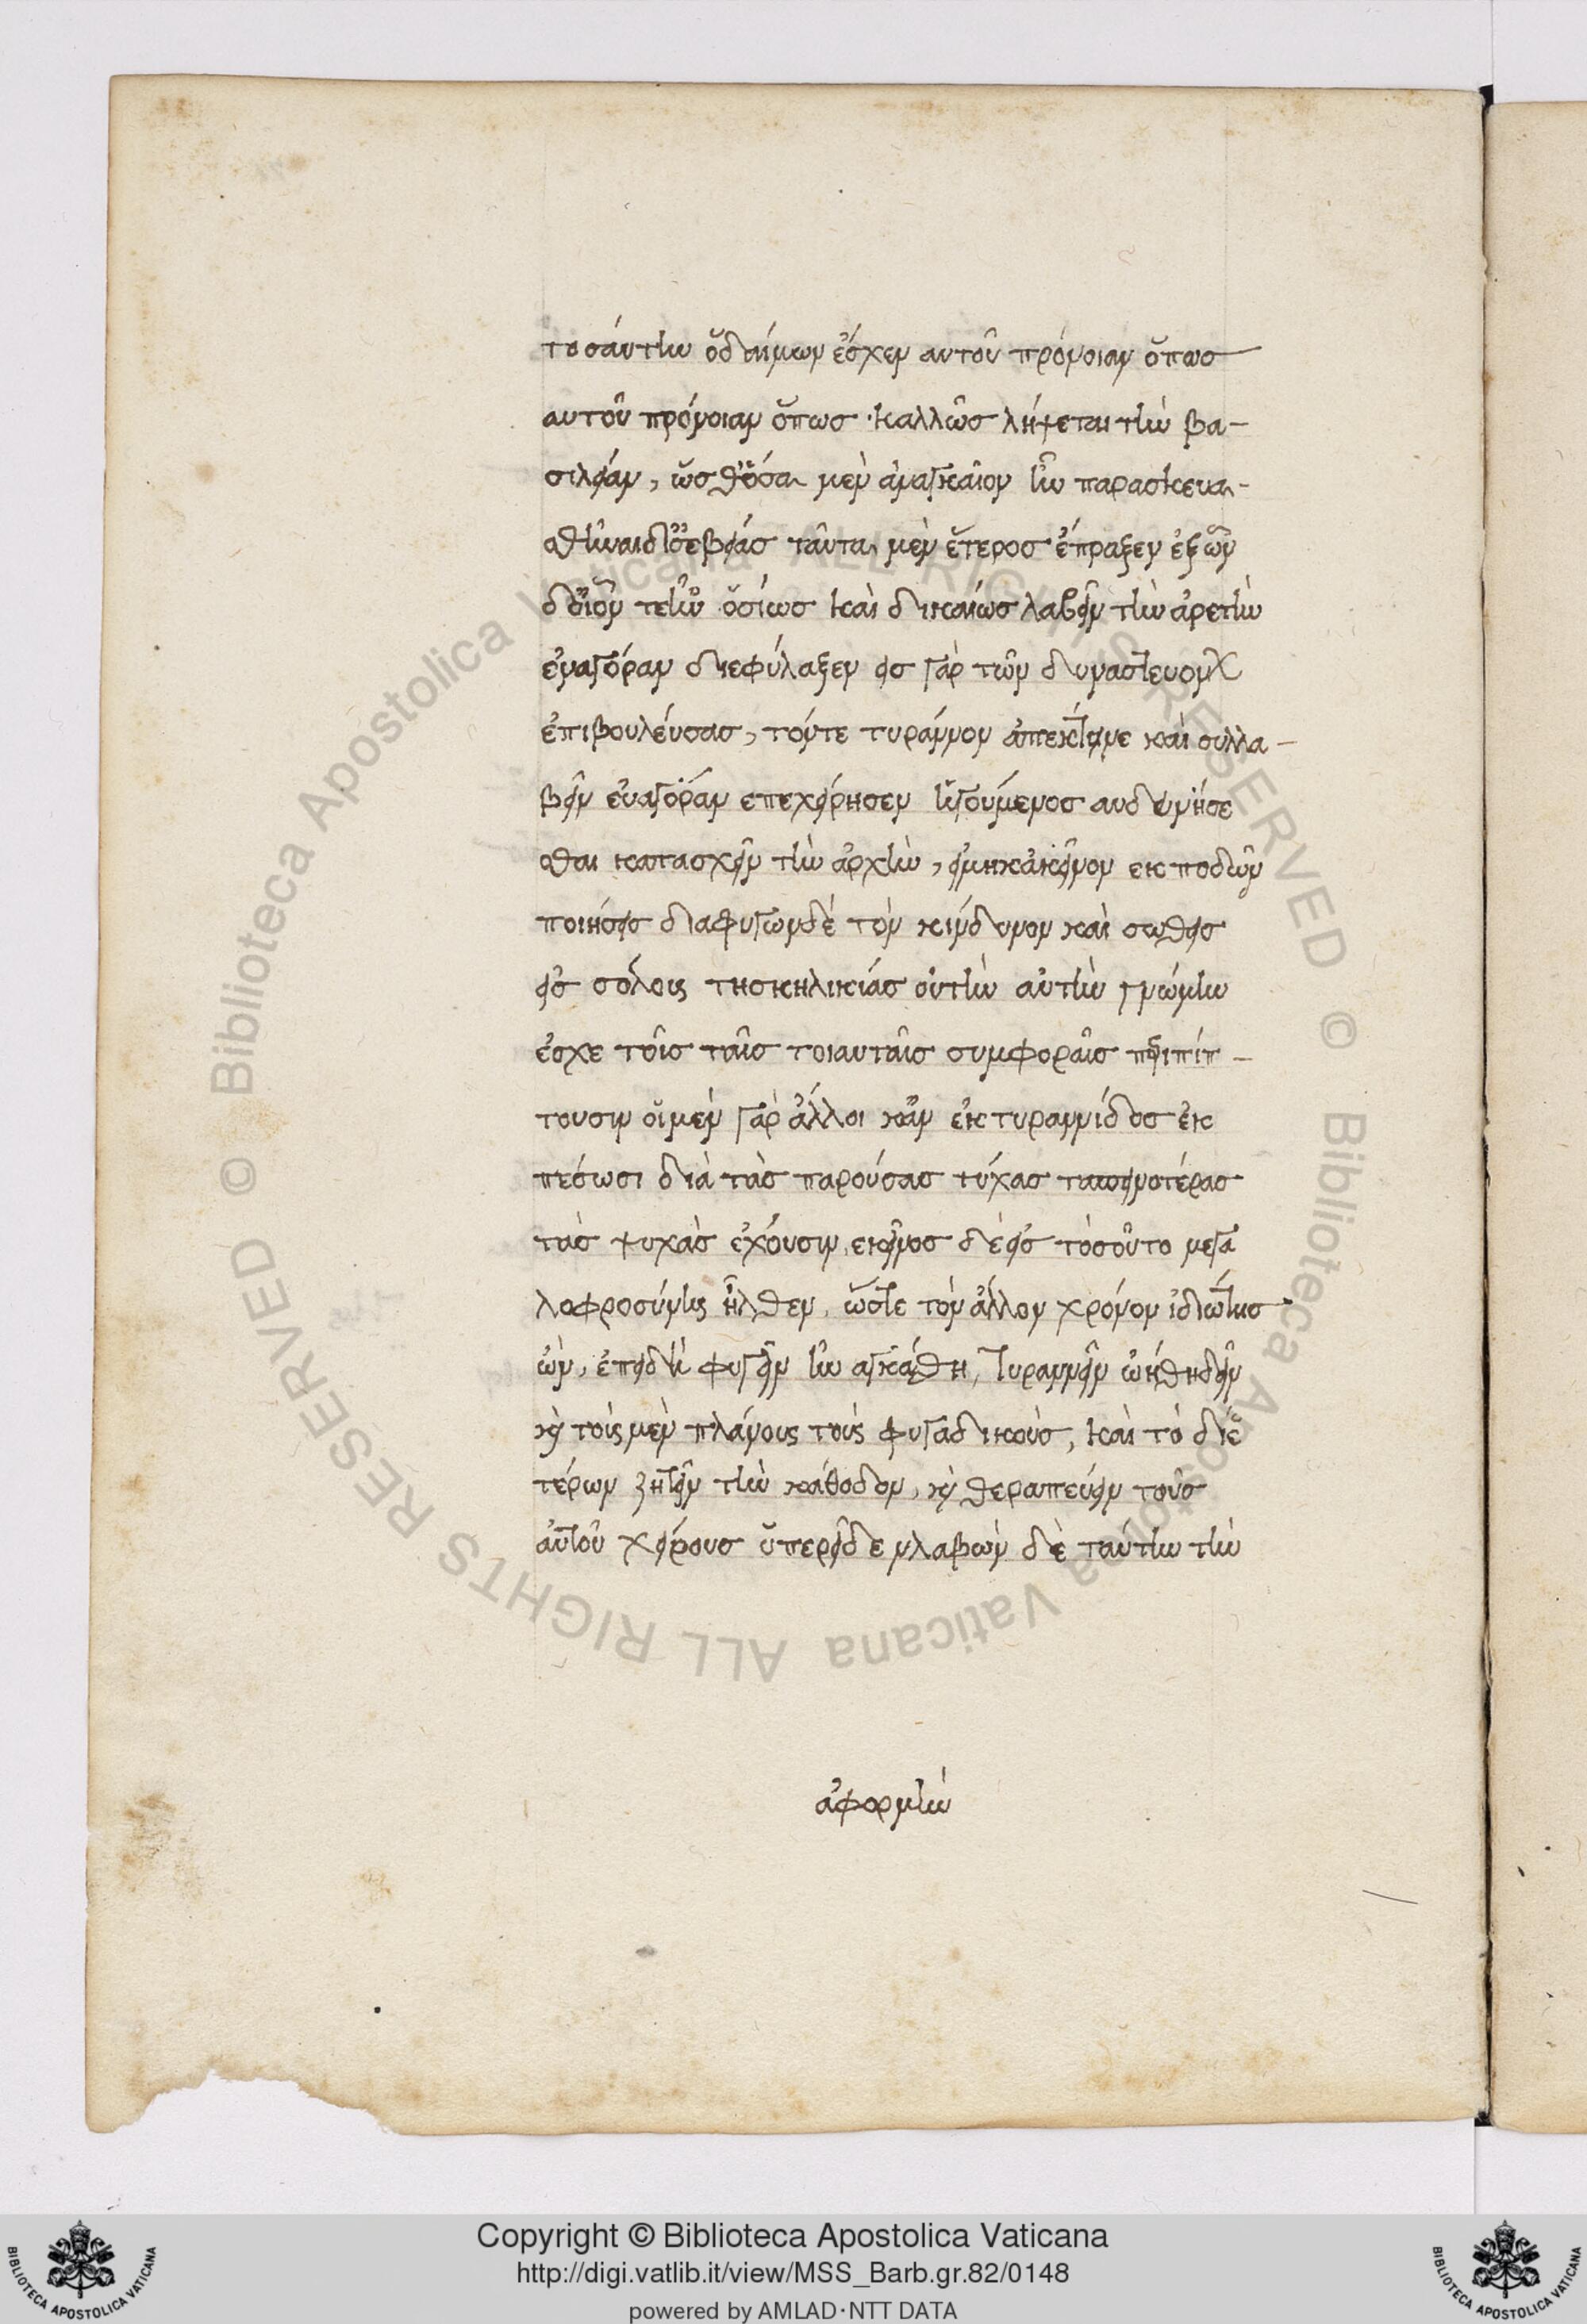 τοσάυτην ὅδαίμων ἐσχεν αυτοῦ πρόνοιαν ὅπωσ
αυτοῦ πρόνοιαν ὅπωσ καλλῶσ λήψεται τὴν βα-
σιλείαν, ὥσθὅσα μὲν ἀναγκαῖον ἦν παρασκευα-
σθῆναιδἰἀσεβείασ ταῦτα μὲν ἕτεροσ ἔπραξεν ἐξὧν
δὁῖον τεἦν ὅσίωσ καὶ δικαίωσ λαβεῖν τὴν ἀρετὴν
ἐυαγόραν διεφύλαξεν εισ γὰρ τῶν δυναστευον
ἐπιβουλέυσασ, τόντε τυράννον ἀπεκτεινε καὶ συλλα-
βεῖν ἐυαγόραν επεχείρησεν ἡγουμενοσ ουδυνήσε
σθαι κατασχεῖν τὴν ἀρχὴν, ειμηκἀκεῖνον εκ ποδῶν
ποιήσεισ διαφυγωνδὲ τὸν κίνδυνον καὶ σωθεισ
εἰσ σόλους τησκηλικιάσ ὀυτὴν αὐτὴν γνώμην
ἐσχε τοῖσ ταῖσ τοιαυταῖσ συμφοραῖσ περιπίπ-
τουσιν οἵμεν γὰρ ἄλλοι κἂν ἐκ τυραννίδοσ ἐκ
πεσωσι διὰ τὰσ παρούσασ τύχασ ταπεινοτέρασ
τὰσ ψυχὰσ ἐχόυσιν, εκεῖνοσ δὲεἰσ τὸσοῦτο μεγα
λοφροσύνης ἦλθεν, ὥστε τὸν ἄλλον χρόνον ἰδιώτησ
ὠν, ἐπειδὴ φυγεῖν ἦν αγκάσθη, τυραννεῖν ὠήθηδεῖν
κỳ τοὺς μὲν πλάνους τοὺς φυγαδικοὺσ, καὶ τὸ διἑ
τέρων ζητεῖν τὴν κάθοδον, κỳ θεραπεύειν τοὺσ
ἁυτοῦ χείρουσ ὕπερεῖδε νλαβὼν δὲ ταύτην τὴν
ἀφορμὴν
Copyright © Biblioteca Apostolica Vaticana
http://digi.vatlib.it/view/MSS_Barb.gr.82/0148
powered by AMLAD·NTT DATA
BIBLIOTECA APOSTOLICA VATICANA
BIBLIOTECA APOSTOLICA VATICANA
© Biblioteca Apostolica Vaticana ALL RIGHTS RESERVED © Biblioteca Apostolica Vaticana ALL RIGHTS RESERVED